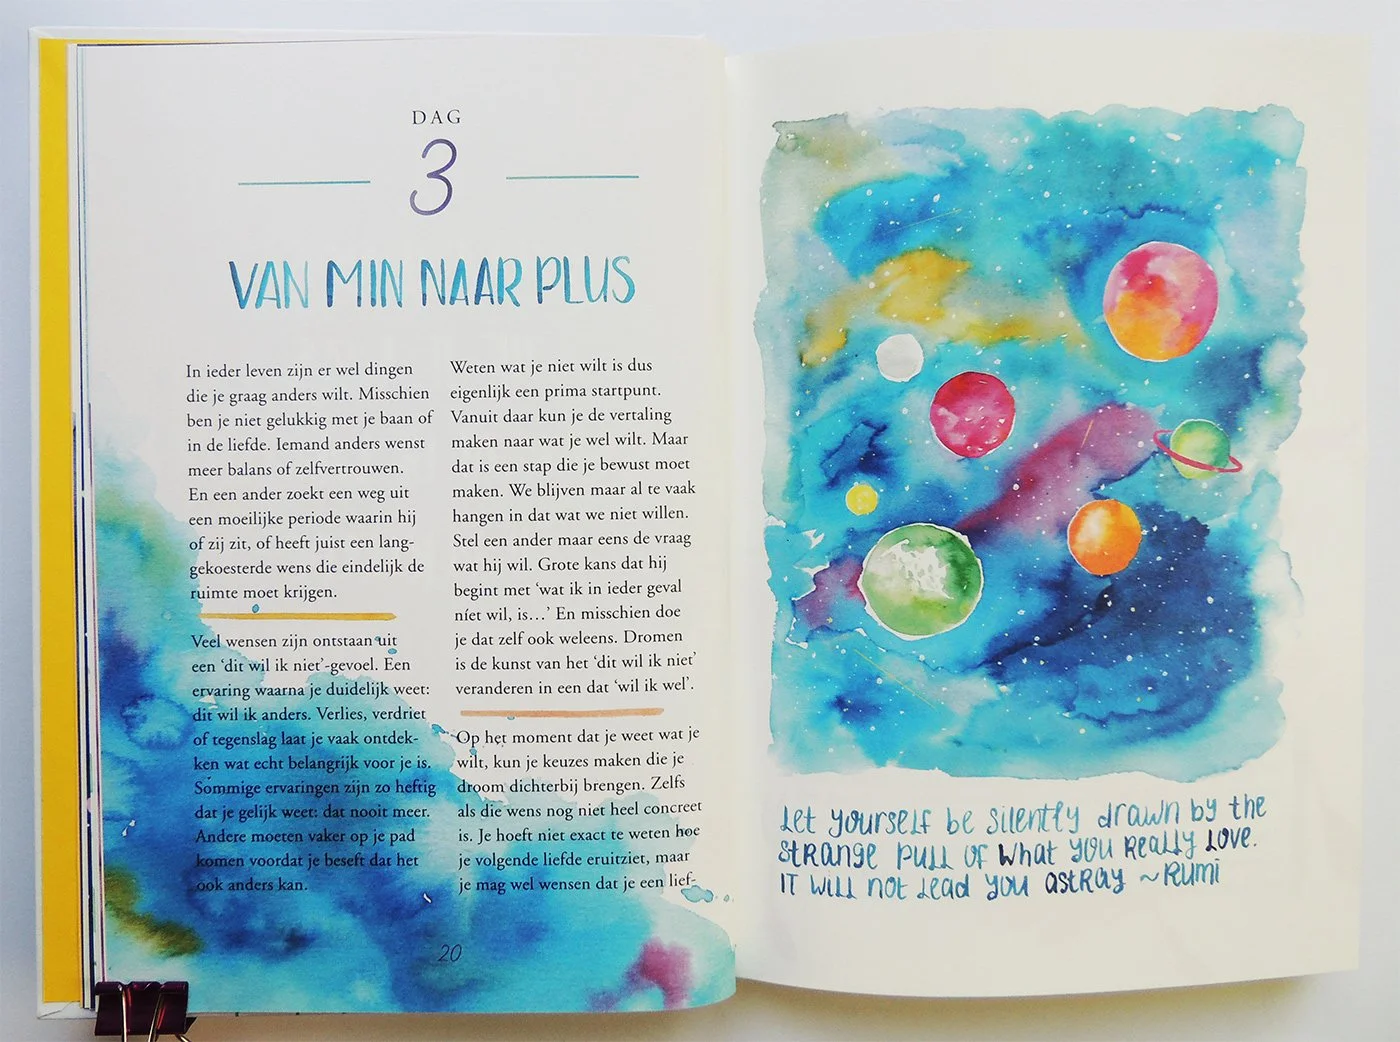 DAG
3
VAN MIN NAAR PLUS
In ieder leven zijn er wel dingen
die je graag anders wilt. Misschien
ben je niet gelukkig met je baan of
in de liefde. Iemand anders wenst
meer balans of zelfvertrouwen.
En een ander zoekt een weg uit
een moeilijke periode waarin hij
of zij zit, of heeft juist een lang-
gekoesterde wens die eindelijk de
ruimte moet krijgen.
Veel wensen zijn ontstaan uit
een ‘dit wil ik niet’-gevoel. Een
ervaring waarna je duidelijk weet:
dit wil ik anders. Verlies, verdriet
of tegenslag laat je vaak ontdek-
ken wat echt belangrijk voor je is.
Sommige ervaringen zijn zo heftig
dat je gelijk weet: dat nooit meer.
Andere moeten vaker op je pad
komen voordat je beseft dat het
ook anders kan.
Weten wat je niet wilt is dus
eigenlijk een prima startpunt.
Vanuit daar kun je de vertaling
maken naar wat je wel wilt. Maar
dat is een stap die je bewust moet
maken. We blijven maar al te vaak
hangen in dat wat we niet willen.
Stel een ander maar eens de vraag
wat hij wil. Grote kans dat hij
begint met ‘wat ik in ieder geval
níet wil, is…’ En misschien doe
je dat zelf ook weleens. Dromen
is de kunst van het ‘dit wil ik niet’
veranderen in een dat ‘wil ik wel’.
Op het moment dat je weet wat je
wilt, kun je keuzes maken die je
droom dichterbij brengen. Zelfs
als die wens nog niet heel concreet
is. Je hoeft niet exact te weten hoe
je volgende liefde eruitziet, maar
je mag wel wensen dat je een lief-
20
Let yourself be silently drawn by the
strange pull of what you really love.
It will not lead you astray ~Rumi